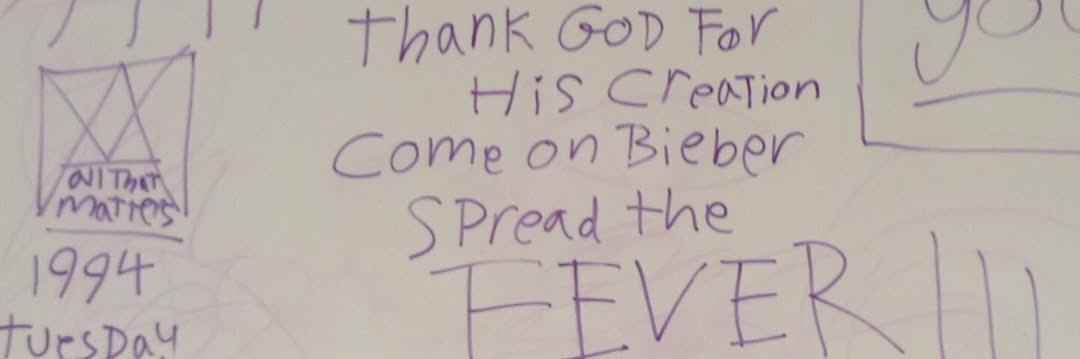 Thank GOD For
His Creation
Come on Bieber
Spread the
FEVER
you
all That
matters
1994
Tuesday